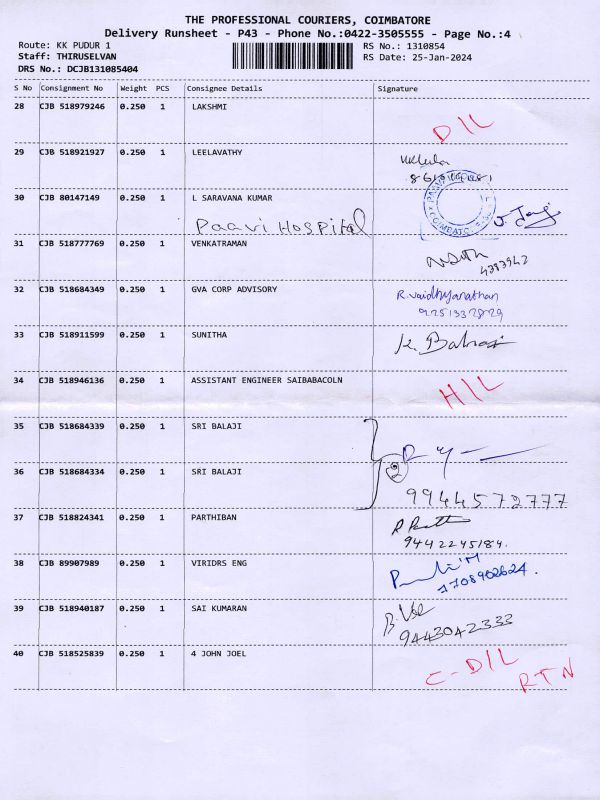 THE PROFESSIONAL COURIERS, COIMBATORE
Delivery Runsheet - P43 - Phone No.:0422-3505555 - Page No.:4
Route: KK PUDUR 1 RS No.: 1310854
Staff: THIRUSELVAN RS Date: 25-Jan-2024
DRS No.: DCJB131085404
S No Consignment No Weight PCS Consignee Details Signature
28 CJB 518979246 0.250 1 LAKSHMI
D/L
29 CJB 518921927 0.250 1 LEELAVATHY
30 CJB 80147149 0.250 1 L SARAVANA KUMAR
Paavi Hospital
31 CJB 518777769 0.250 1 VENKATRAMAN
4393942
32 CJB 518684349 0.250 1 GVA CORP ADVISORY
R.Vaidhyanathan
33 CJB 518911599 0.250 1 SUNITHA
K. Balraj
34 CJB 518946136 0.250 1 ASSISTANT ENGINEER SAIBABACOLN
H/L
35 CJB 518684339 0.250 1 SRI BALAJI
36 CJB 518684334 0.250 1 SRI BALAJI
2
9944572777
37 CJB 518824341 0.250 1 PARTHIBAN
9442245184.
38 CJB 89907989 0.250 1 VIRIDRS ENG
1708902624.
39 CJB 518940187 0.250 1 SAI KUMARAN
9443042333
40 CJB 518525839 0.250 1 4 JOHN JOEL
C-D/L
RTN